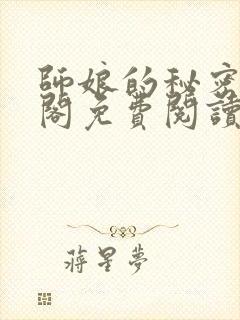 師娘的秘密
閣免費閱讀
蔣星夢